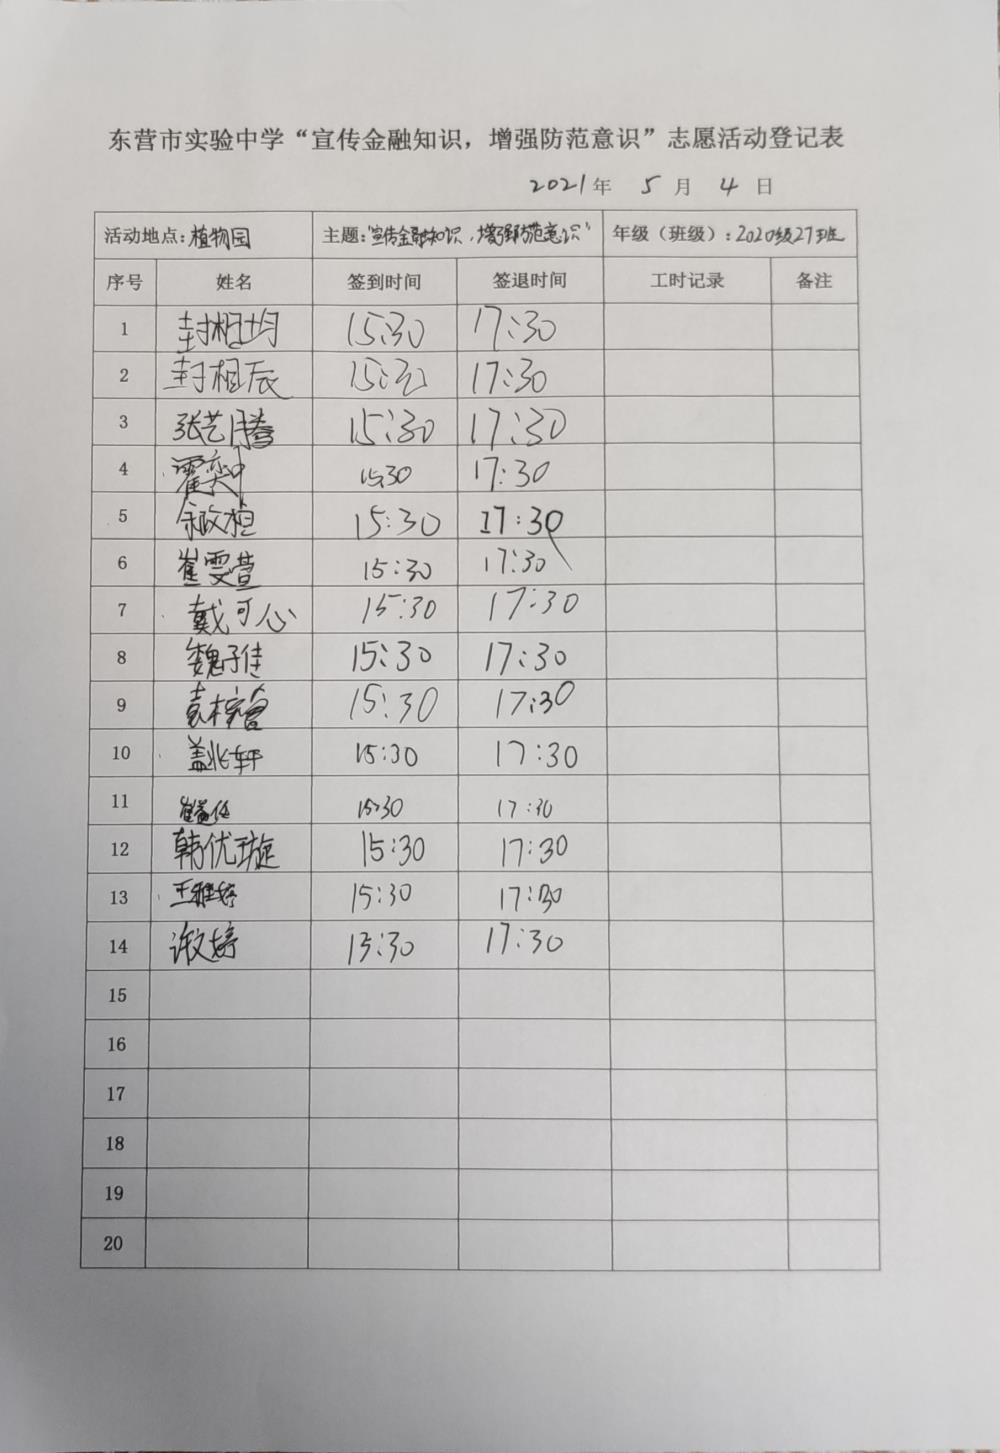 东营市实验中学“宣传金融知识，增强防范意识”志愿活动登记表
2021年 5月 4日
活动地点：植物园 主题：“宣传金融知识，增强防范意识” 年级（班级）：2020级27班
序号 姓名 签到时间 签退时间 工时记录 备注
1 封相均 15:30 17:30
2 封相辰 15:30 17:30
3 张艺腾 15:30 17:30
4 霍奕冲 15:30 17:30
5 余政桓 15:30 17:30
6 崔雯萱 15:30 17:30
7 戴可心 15:30 17:30
8 魏子佳 15:30 17:30
9 袁梓 15:30 17:30
10 盖兆轩 15:30 17:30
11 15:30 17:30
12 韩优璇 15:30 17:30
13 王雅婷 15:30 17:30
14 许文婷 15:30 17:30
15
16
17
18
19
20